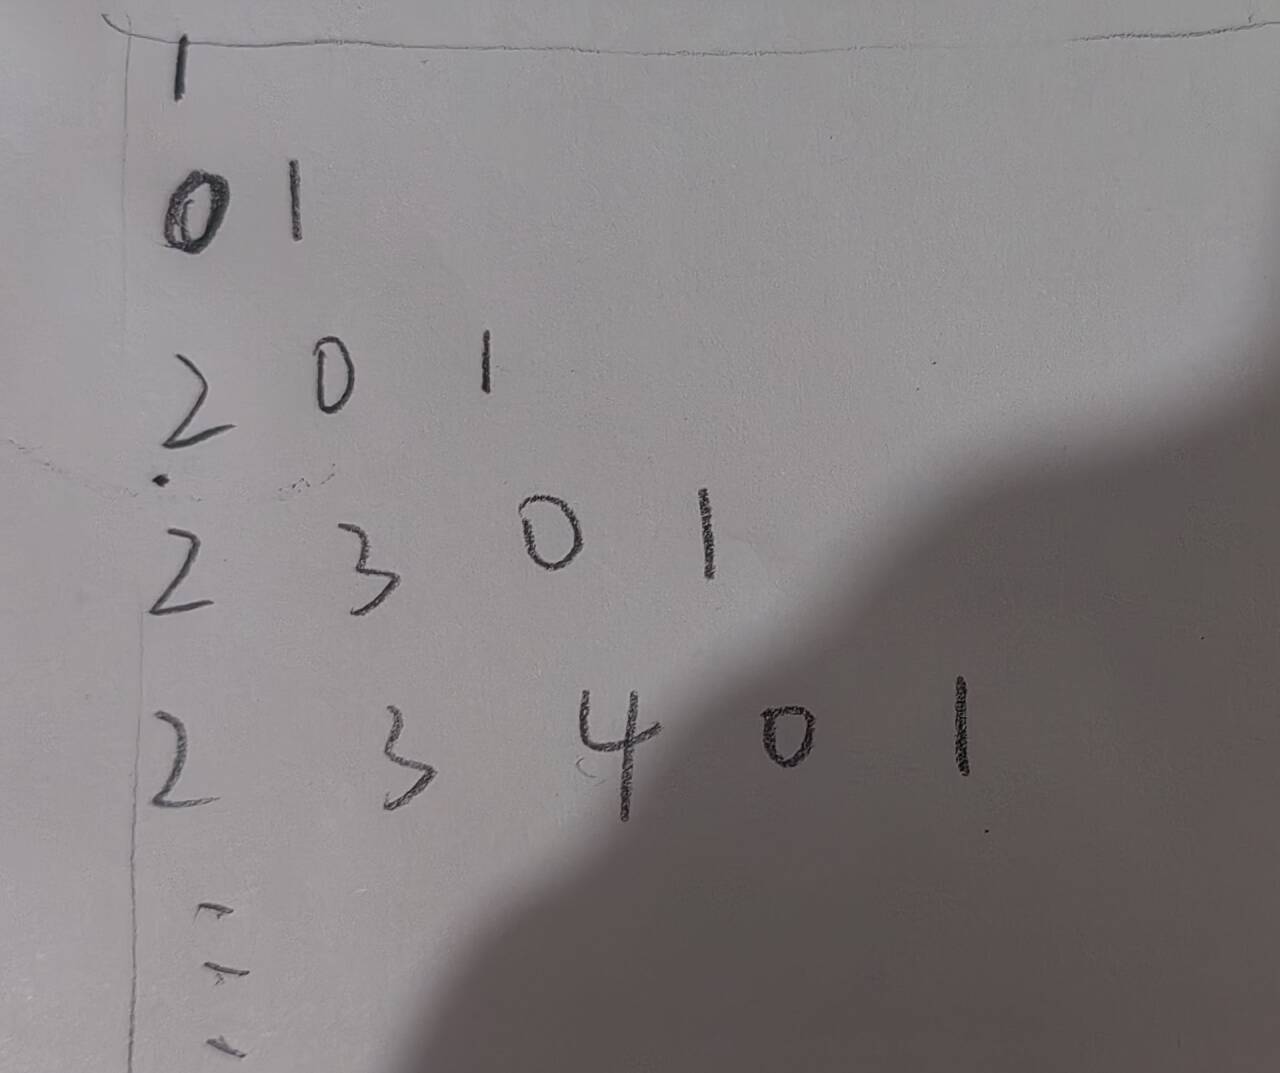 1
0 1
2 0 1
2 3 0 1
2 3 4 0 1